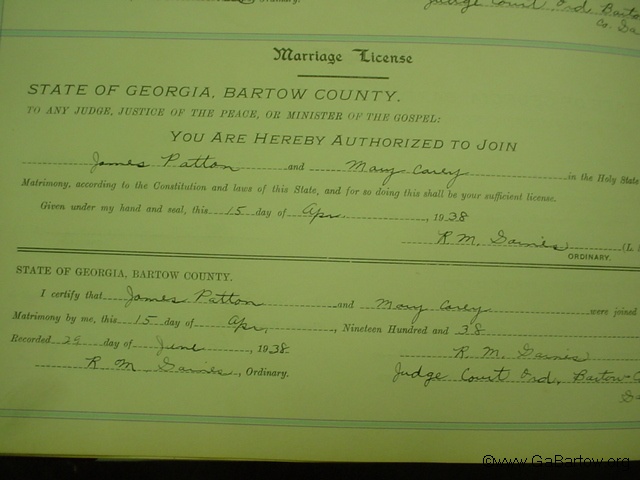 Ordinary.
Judge Court Ord, Barto
Co. Ga
Marriage License
STATE OF GEORGIA, BARTOW COUNTY.
TO ANY JUDGE, JUSTICE OF THE PEACE, OR MINISTER OF THE GOSPEL:
YOU ARE HEREBY AUTHORIZED TO JOIN
James Patton and Mary Carey in the Holy State
Matrimony, according to the Constitution and laws of this State, and for so doing this shall be your sufficient license.
Given under my hand and seal, this 15 day of Apr , 1938
R. M. Gaines (L.
ORDINARY.
STATE OF GEORGIA, BARTOW COUNTY.
I certify that James Patton and Mary Carey were joined
Matrimony by me, this 15 day of Apr, , Nineteen Hundred and 38
Recorded 29 day of June , 1938
R. M. Gaines
R. M. Gaines , Ordinary.
Judge Court Ord, Bartow C
Ga
©www.GaBartow.org